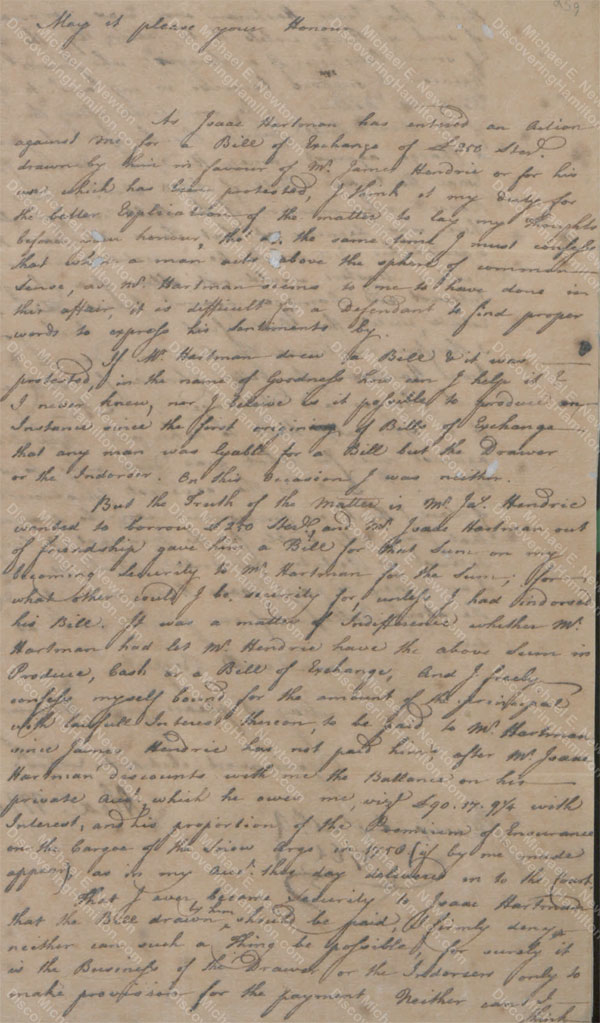 259
May it please your Honour
As Isaac Hartman has entered an Action
against me for a Bill of Exchange of £250 Sterl.
drawn by him in favour of Mr. James Hendrie or for his
use which has been protested, I think it my duty for
the better Explication of the matter to lay my thoughts
before your honour, tho' at the same time I must confess
that when a man acts above the sphere of common
Sense, as Mr. Hartman seems to me to have done in
this affair it is difficult for a Defendant to find proper
words to express his Sentiments by.
If Mr. Hartman drew a Bill & it was
protested, in the name of Goodness how can I help it?
I never knew, nor I beleive is it possible to produce an
Instance since the first origin of Bills of Exchange
that any man was lyable for a Bill but the Drawer
or the Indorser. On this Occasion I was neither.
But the Truth of the Matter is Mr. Jas. Hendrie
wanted to borrow £250 Sterl. and Mr. Isaac Hartman out
of friendship gave him a Bill for that Sum on my
becoming Security to Mr. Hartman for the Sum; for
what other could I be security for, unless I had indorsed
his Bill. It was a matter of Indifference whether Mr.
Hartman had let Mr. Hendrie have the above Sum in
Produce, Cash or a Bill of Exchange, And I freely
confess myself bound for the amount of the principal
with lawfull Interest thereon, to be paid to Mr. Hartman
since James Hendrie has not paid him, after Mr. Isaac
Hartman discounts with me the Ballance on his
private Acct. which he owes me, vizt. £90.17.9¾ with
Interest, and his proportion of the Premium of Ensurance
on the Cargoe of the Snow Argo in 1758 (if by me made
appear), as in my Acct. this day delivered in to the Court.
That I ever became security to Isaac Hartman
that the Bill drawn by him should be paid, I firmly deny,
neither can such a thing be possible, for surely it
is the Business of the Drawer or the Indorsers only to
make provision for the payment. Neither can I
think
Michael E. Newton
DiscoveringHamilton.com